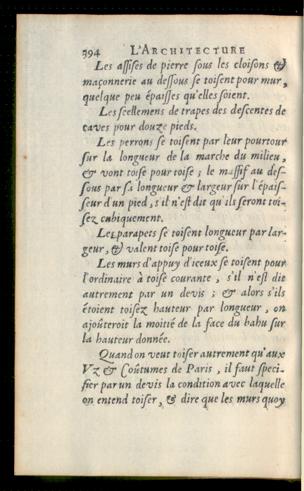 394 L'ARCHITECTURE
Les assises de pierre sous les cloisons &
maçonnerie au dessous se toisent pour mur,
quelque peu épaisses qu'elles soient.
Les scellemens de trapes des descentes de
caves pour douze pieds.
Les perrons se toisent par leur pourtour
sur la longueur de la marche du milieu,
& vont toise pour toise ; le massif au des-
sous par sa longueur & largeur sur l'épais-
seur d'un pied, s'il n'est dit qu'ils seront toi-
sez cubiquement.
Les parapets se toisent longueur par lar-
geur, & valent toise pour toise.
Les murs d'appuy d'iceux se toisent pour
l'ordinaire à toise courante, s'il n'est dit
autrement par un devis ; & alors s'ils
étoient toisez hauteur par longueur, on
ajoûteroit la moitié de la face du bahu sur
la hauteur donnée.
Quand on veut toiser autrement qu'aux
Vz & Coûtumes de Paris, il faut speci-
fier par un devis la condition avec laquelle
on entend toiser, & dire que les murs quoy